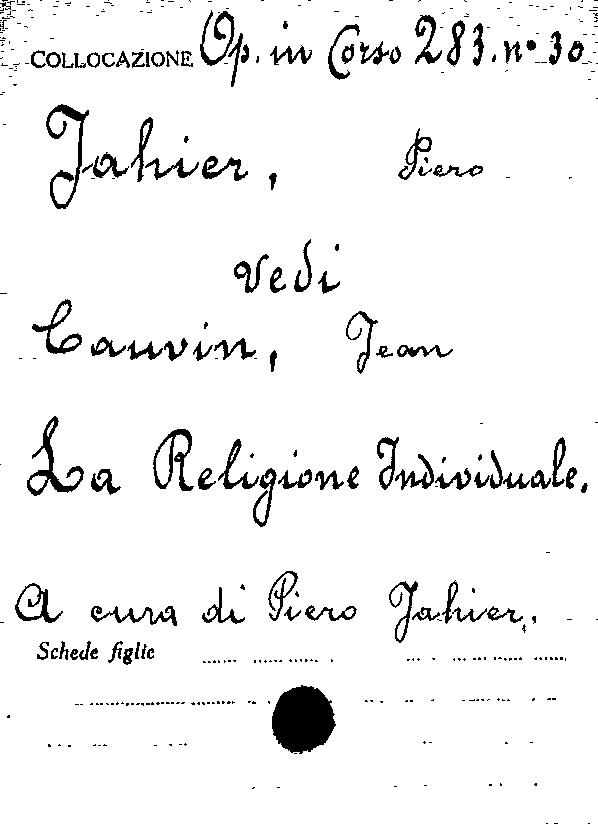 COLLOCAZIONE Op. in Corso 283. n° 30
Jahier, Piero
vedi
Cauvin, Jean
La Religione Individuale.
A cura di Piero Jahier.
Schede figlie